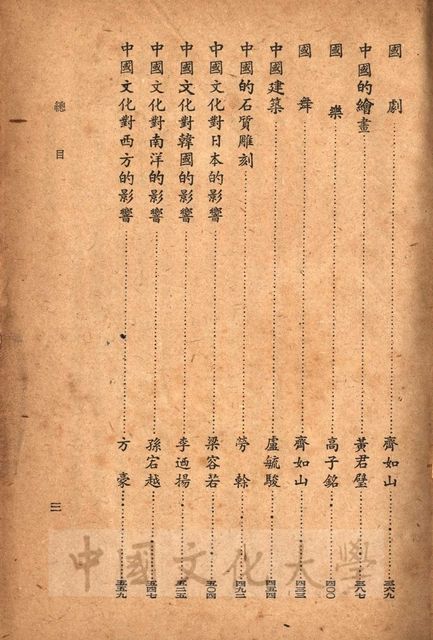 國劇……齊如山……三六九
中國的繪畫……黃君璧……三八七
國樂……高子銘……四〇〇
國舞……齊如山……四三三
中國建築……盧毓駿……四五四
中國的石質雕刻……勞榦……四九二
中國文化對日本的影響……梁容若……五〇四
中國文化對韓國的影響……李迺揚……五二五
中國文化對南洋的影響……孫宕越……五四七
中國文化對西方的影響……方豪……五五九
總目
三
中國文化大學